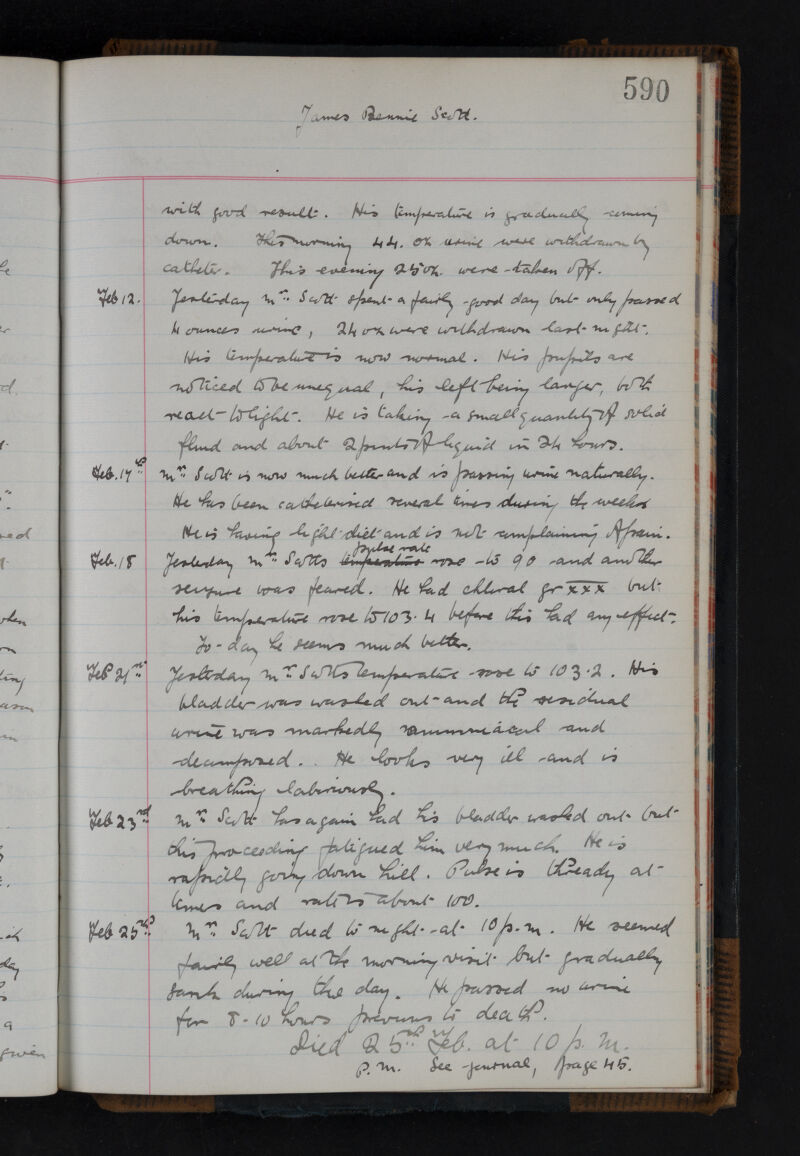 590
James Bennie Scott.
with good result. His temperature is gradually coming
down. This morning 44. oz urine were withdrawn by
catheter. This evening 25 oz. were taken off.
Feb 12. Yesterday Mr. Scott spent a fairly good day but only passed
4 ounces urine, 24 oz were withdrawn last night.
His temperature is now normal. His pupils are
noticed to be unequal, his left being larger, both
react to light. He is taking a small quantity of solid
food and about 2 pints of liquid in 24 hours.
Feb. 17th Mr. Scott is now much better and is passing urine naturally.
He has been catheterised several times during the week
He is having light diet and is not complaining of pain.
pulse rate
Feb. 18 Yesterday Mr. Scotts temperature rose to 90 and another
seizure was feared. He had chloral gr xxx but
his temperature rose to 103.4 before this had any effect.
To-day he seems much better.
Feb 21st Yesterday Mr. Scotts temperature rose to 103.2. His
bladder was washed out and the residual
urine was markedly ammoniacal and
decomposed. He looks very ill and is
breathing laboriously.
Feb 23rd Mr. Scott has again had his bladder washed out but
this proceeding fatigued him very much. He is
rapidly going down hill. Pulse is thready at
times and rate is about 100.
Feb 25th Mr. Scott died to night at 10 p.m. He seemed
fairly well at the morning visit but gradually
sank during the day. He passed no urine
for 8-10 hours previous to death.
Died 25th Feb. at 10 p.m.
P.M. See journal, page 45.